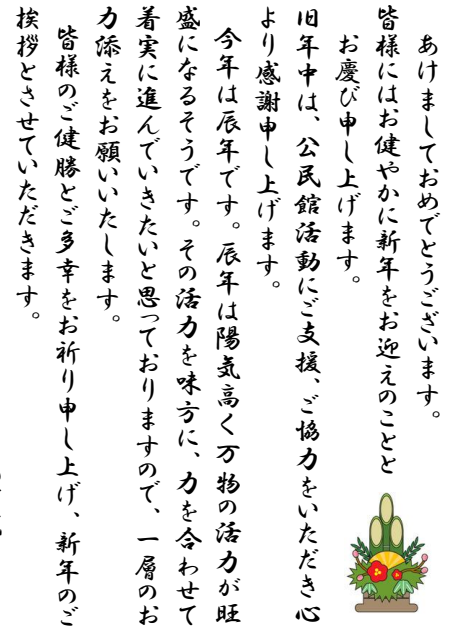 あけましておめでとうございます。
皆様にはお健やかに新年をお迎えのことと
お慶び申し上げます。
旧年中は、公民館活動にご支援、ご協力をいただき心
より感謝申し上げます。
今年は辰年です。辰年は陽気高く万物の活力が旺
盛になるそうです。その活力を味方に、力を合わせて
着実に進んでいきたいと思っておりますので、一層のお
力添えをお願いいたします。
皆様のご健勝とご多幸をお祈り申し上げ、新年のご
挨拶とさせていただきます。